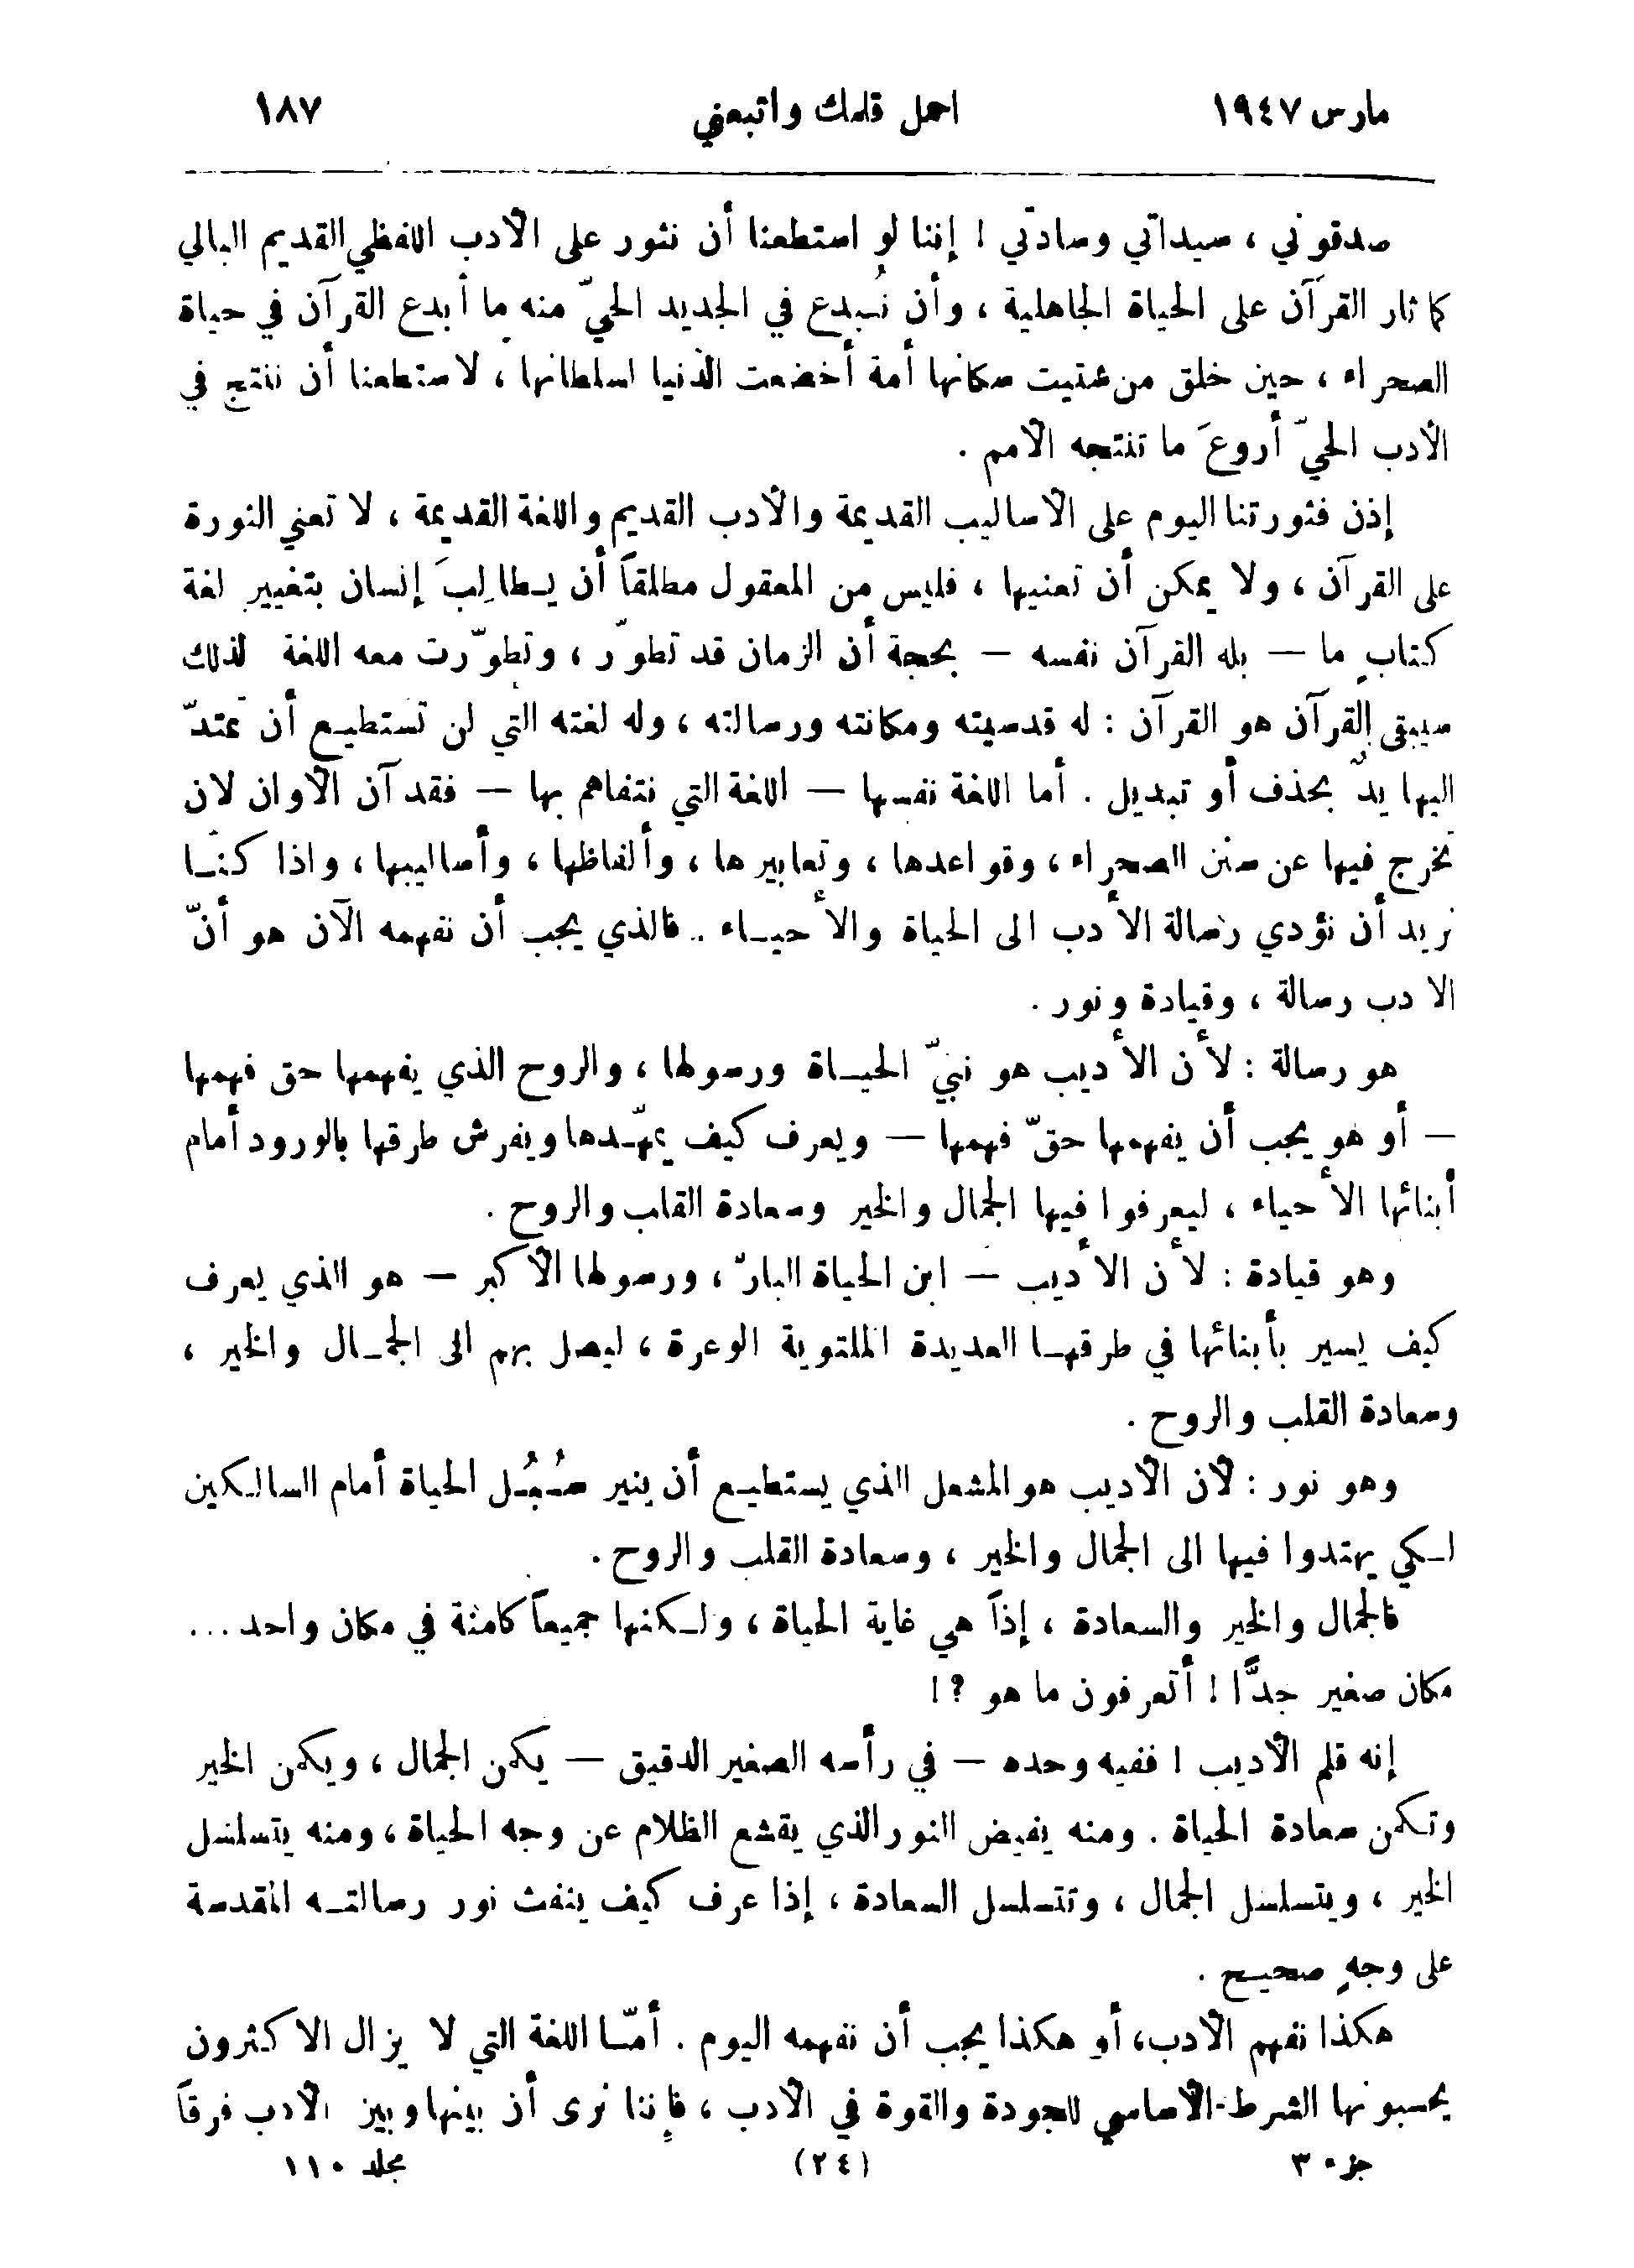 مارس ١٩٤٧ احمل قلمك واتبعني ١٨٧
صدقوني ، سيداتي وسادتي ! إننا لو استطعنا أن نثور على الأدب اللفظي القديم البالي
كما ثار القرآن على الحياة الجاهلية ، وأن نُبدع في الجديد الحيّ منه ما أبدع القرآن في حياة
الصحراء ، حين خلق من شتيت سكانها أمة أخضعت الدنيا لسلطانها ، لاستطعنا أن ننتج في
الأدب الحيّ أروعَ ما تنتجه الأمم .
إذن فثورتنا اليوم على الأساليب القديمة والأدب القديم واللغة القديمة ، لا تعني الثورة
على القرآن ، ولا يمكن أن تعنيها ، فليس من المعقول مطلقاً أن يطالِبَ إنسان بتغيير لغة
كتابٍ ما — بله القرآن نفسه — بحجة أن الزمان قد تطوّر ، وتطوّرت معه اللغة لذلك
سيبقى القرآن هو القرآن : له قدسيته ومكانته ورسالته ، وله لغته التي لن تستطيع أن تمتدّ
اليها يدٌ بحذف أو تبديل . أما اللغة نفسها — اللغة التي نتفاهم بها — فقد آن الأوان لان
نخرج فيها عن سنن الصحراء ، وقواعدها ، وتعابيرها ، وألفاظها ، وأساليبها ، واذا كنا
نريد أن نؤدي رسالة الأدب الى الحياة والأحياء .. فالذي يجب أن نفهمه الآن هو أنّ
الادب رسالة ، وقيادة ونور .
هو رسالة : لأن الأديب هو نبيّ الحياة ورسولها ، والروح الذي يفهمها حق فهمها
— أو هو يجب أن يفهمها حقّ فهمها — ويعرف كيف يمهّدها ويفرش طرقها بالورود أمام
أبنائها الأحياء ، ليعرفوا فيها الجمال والخير وسعادة القلب والروح .
وهو قيادة : لأن الأديب — ابن الحياة البارّ ، ورسولها الأكبر — هو الذي يعرف
كيف يسير بأبنائها في طرقها العديدة الملتوية الوعرة ، ليصل بهم الى الجمال والخير ،
وسعادة القلب والروح .
وهو نور : لأن الأديب هو المشعل الذي يستطيع أن ينير سُبُل الحياة أمام السالكين
لكي يهتدوا فيها الى الجمال والخير ، وسعادة القلب والروح .
فالجمال والخير والسعادة ، إذاً هي غاية الحياة ، ولكنها جميعاً كامنة في مكان واحد ...
مكان صغير جدًّا ! أتعرفون ما هو ؟!
إنه قلم الأديب ! ففيه وحده — في رأسه الصغير الدقيق — يكمن الجمال ، ويكمن الخير
وتكمن سعادة الحياة . ومنه يفيض النور الذي يقشع الظلام عن وجه الحياة ، ومنه يتسلسل
الخير ، ويتسلسل الجمال ، وتتسلسل السعادة ، إذا عرف كيف ينفث نور رسالته المقدسة
على وجهٍ صحيح .
هكذا نفهم الأدب ، أو هكذا يجب أن نفهمه اليوم . أمّا اللغة التي لا يزال الاكثرون
يحسبونها الشرط الأساسي للجودة والقوة في الأدب ، فإننا نرى أن بينها وبين الأدب فرقاً
جزء ٣ (٢٤) مجلد ١١٠